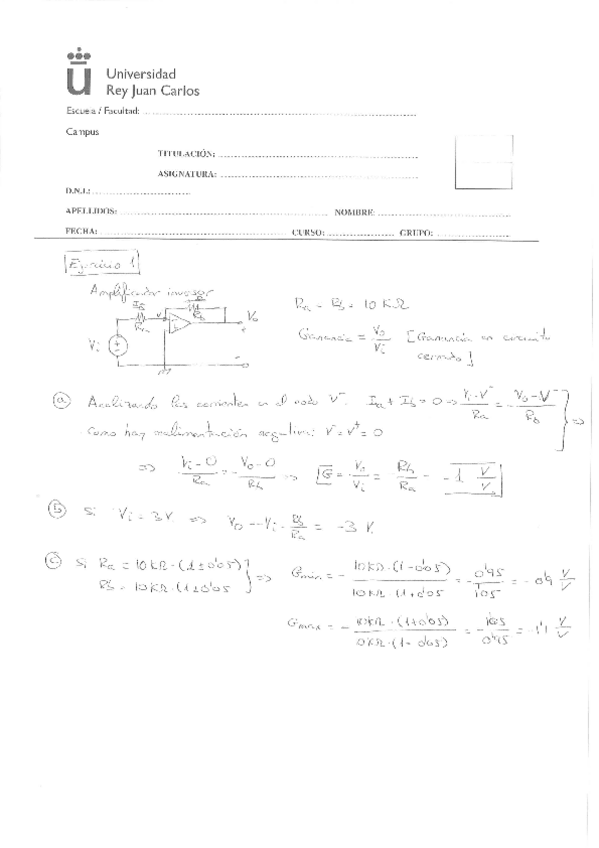 Universidad
Rey Juan Carlos
Escuela / Facultad:
Campus
TITULACIÓN:
ASIGNATURA:
D.N.I.:
APELLIDOS: NOMBRE:
FECHA: CURSO: GRUPO:
Ejercicio 1
Amplificador inversor
Ra = Rb = 10 KΩ
Ganancia = Vo/Vi [Ganancia en circuito cerrado]
Ia Ra V⁻ Rb Vo
Vi
a) Analizando las corrientes en el nodo V⁻: Ia + Ib = 0 => (Vi - V⁻)/Ra = - (Vo - V⁻)/Rb } =>
Como hay realimentación negativa: V⁻ = V⁺ = 0
=> (Vi - 0)/Ra = - (Vo - 0)/Rb => G = Vo/Vi = - Rb/Ra = - 1 V/V
b) Si Vi = 3V => Vo = -Vi · Rb/Ra = -3 V.
c) Si Ra = 10KΩ·(1±0'05)
Rb = 10KΩ·(1±0'05) } => Gmin = - 10KΩ·(1-0'05) / 10KΩ (1+0'05) = - 0'95/1'05 = - 0'9 V/V
Gmax = - 10KΩ·(1+0'05) / 10KΩ·(1-0'05) = - 1'05/0'95 = - 1'1 V/V